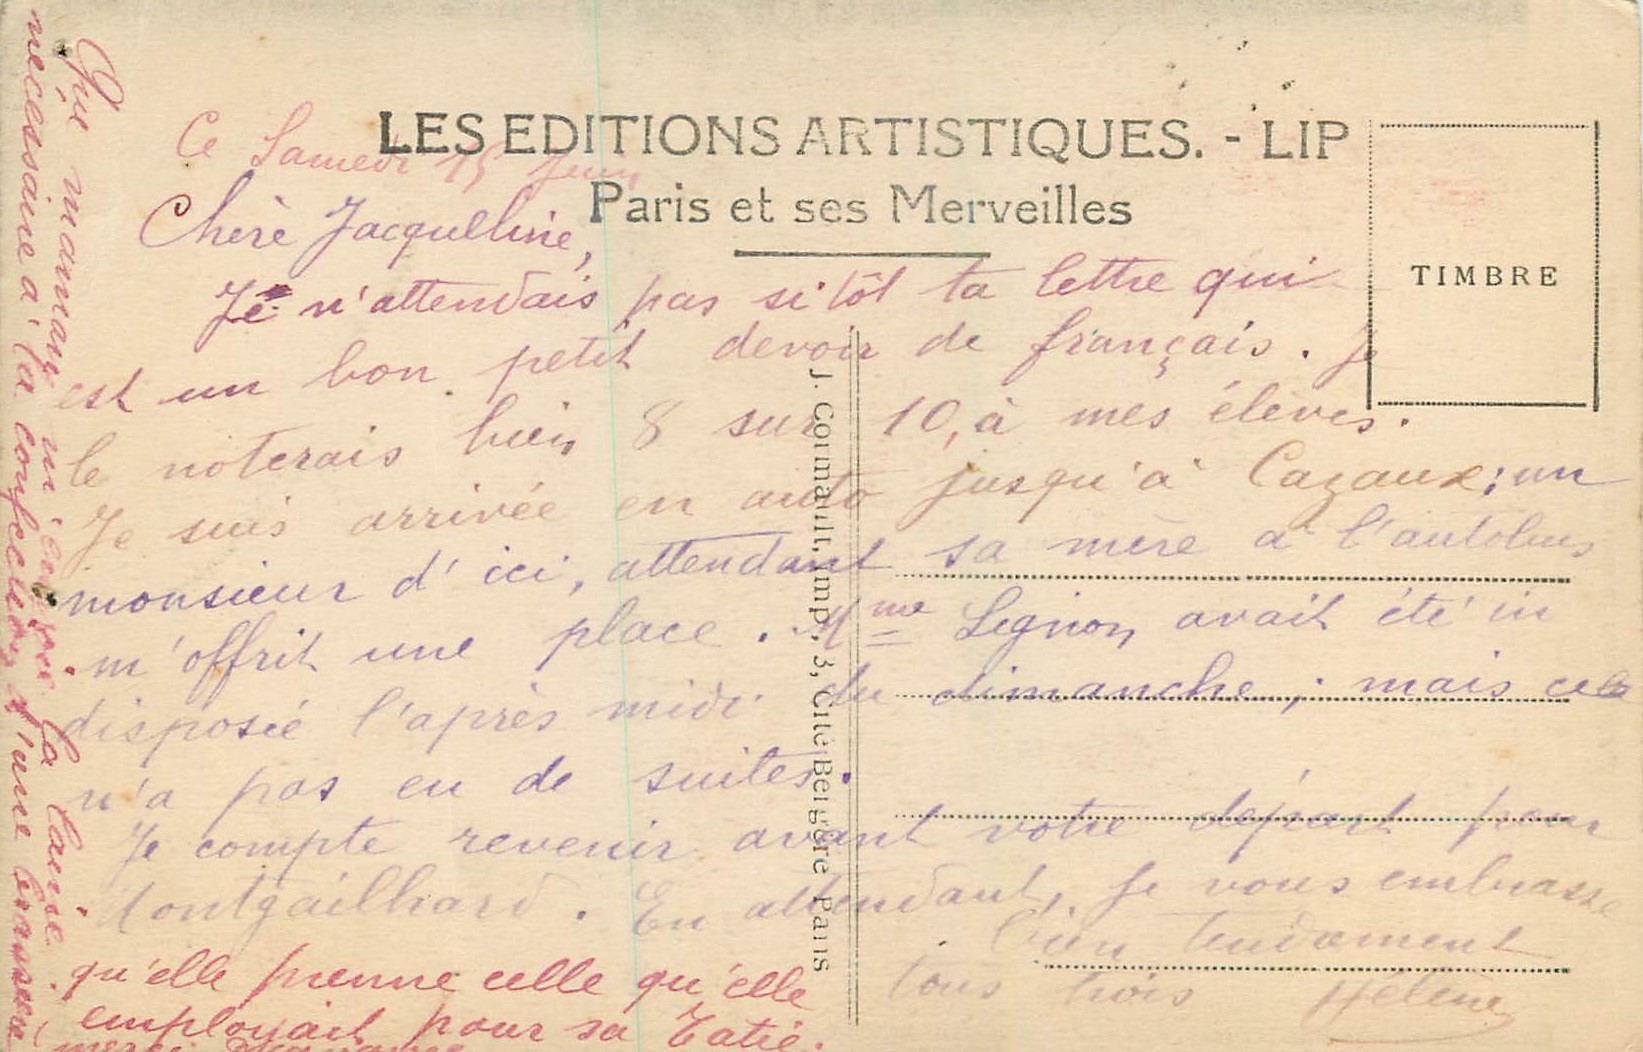 LES EDITIONS ARTISTIQUES. - LIP
Paris et ses Merveilles
TIMBRE
J. Cormault, Imp., 3, Cité Bergère Paris
Ce Samedi 15 Juin
Chère Jacquelline,
Je n'attendais pas sitôt ta lettre qui
est un bon petit devoir de français. Je
le noterais bien 8 sur 10, à mes élèves.
Je suis arrivée en auto jusqu'à Cazaux; un
monsieur d'ici, attendant sa mère à l'autobus
m'offrit une place. Mme Lignon avait été in
disposée l'après midi du dimanche; mais cela
n'a pas eu de suites.
Je compte revenir avant votre départ pour
Montgailhard. En attendant, je vous embrasse
bien tendrement
tous trois Hélène
Que maman m'envoie la laine
nécessaire à la confection d'une brassière
qu'elle prenne celle qu'elle
employait pour sa Tatie.
merci